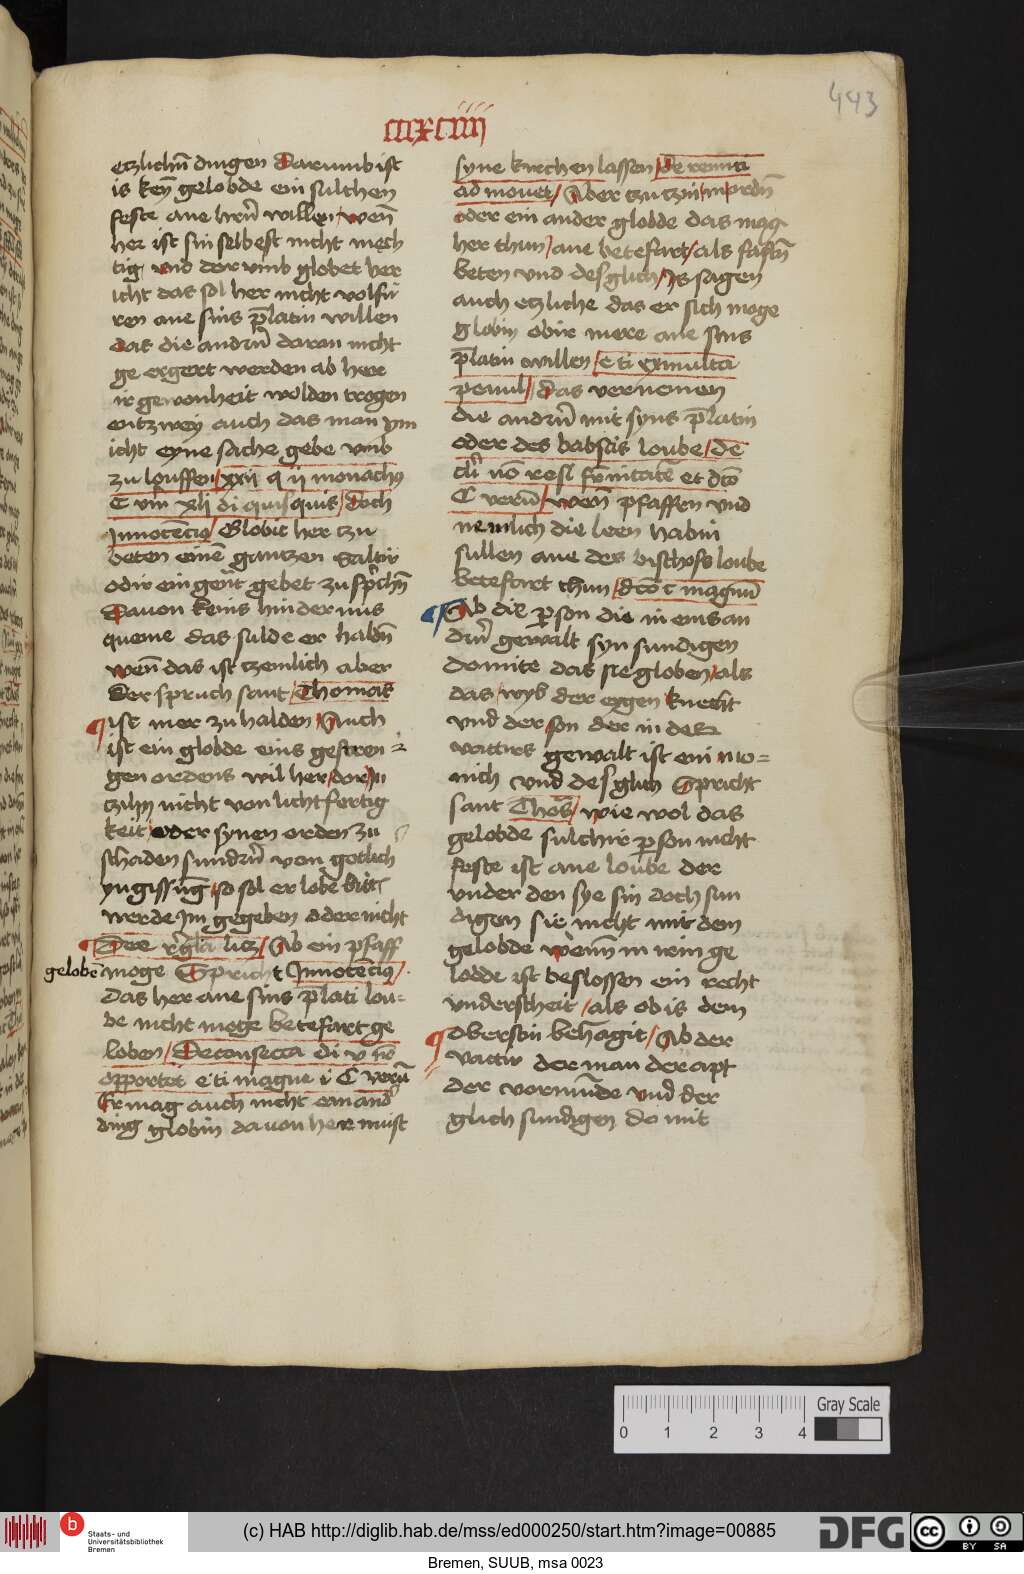 443
ccccxciiii
etzlichn̄ dingen Darumb ist
is keyn̄ gelobde ein sulchen
feste ane hrn̄ willen wen̄
her ist sin selbest nicht mech
tig vnd dorvmb globet her
icht das sol her nicht volfu
ren ane sins p̄latin willen
das die andrn̄ daran nicht
ge ergert werden ab herr
ir gewonheit wolden trogen
entzwey auch das man ym
icht eyne sache gebe vmb
zu louffen xxii q ii monachꝯ
C vm̄ xlj di quisquis Doch
Innocēcio Globit her tzu
beten einē gantzen Saltir
odir ein gen̄t gebet zu sp̄chn̄
Dauon keins hindernus
queme das sulde er haldn̄
wen̄ das ist tzemlich aber
Der spruch sant Thomas
ist mer zu halden Auch
ist ein globde eins gestren
gen ordens wil her dor In
tzihn nicht von lichtfertig
keit oder synen orden zu
schaden sundrn̄ von gotlich
yngissūg so sol er lobē bitt
werde Im gegeben oder nicht
Dere r̄gla licꝫ Ab ein pfaff
gelobē moge Spricht Innotēcius
das her ane sins p̄lati lou
be nicht moge betefart ge
loben De consecra di v nō
opportet eti magne i C verū
Er mag auch nicht emand̄
ding globin dauon her must
syne kirchen lassen De renūti
ad mouet Aber tzu tzin in ordn̄
oder ein ander globde das mag
her thun ane betefart als fastn̄
beten vnd desglich Is sagen
auch etzliche das er sich moge
globin obir mere ane sins
p̄latin willen eti xx multa
peaul das vernemen
die andrn̄ mit syns p̄latin
oder des babstis loube dē
cli nō resi et dcō
C verū wen̄ pfaffen vnd
nemlich die leen habin
sullen ane des bischofs loube
betefart thun dcō c magnū
Ab die p̱son die in eins an
drn̄ gewalt syn sundigen
domite das sie globen als
das wyb der eygen knecht
vnd der son der in des
vattirs gewalt ist ein mo
nich vnd desglich Spricht
sant Thoās wie wol das
gelobde sulchir p̱son nicht
feste ist ane loube der
vnder den sye sin doch sun
digen sie nicht mit dem
gelobde wenn in irm ge
lobde ist beslossen ein recht
vnderscheit als ob is dem
obersten behagit Ab der
vattir der man der apt
der vormunde vnd der
glich sundigen do mit
0 1 2 3 4
Gray Scale
Staats- und
Universitätsbibliothek
Bremen
(c) HAB http://diglib.hab.de/mss/ed000250/start.htm?image=00885
DFG
cc BY SA
Bremen, SUUB, msa 0023